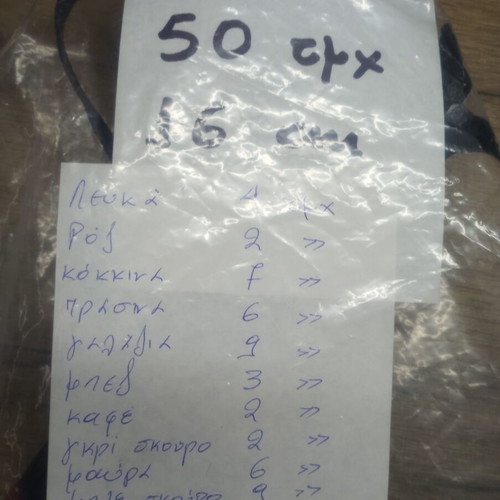 50 τμχ
16 cm
Λευκά 4 τμχ
Ρόζ 2 »
κόκκινα 7 »
πράσινα 6 »
γαλάζια 9 »
μπεζ 3 »
καφέ 2 »
γκρί σκούρο 2 »
μαύρα 6 »
σκούρο 9 »